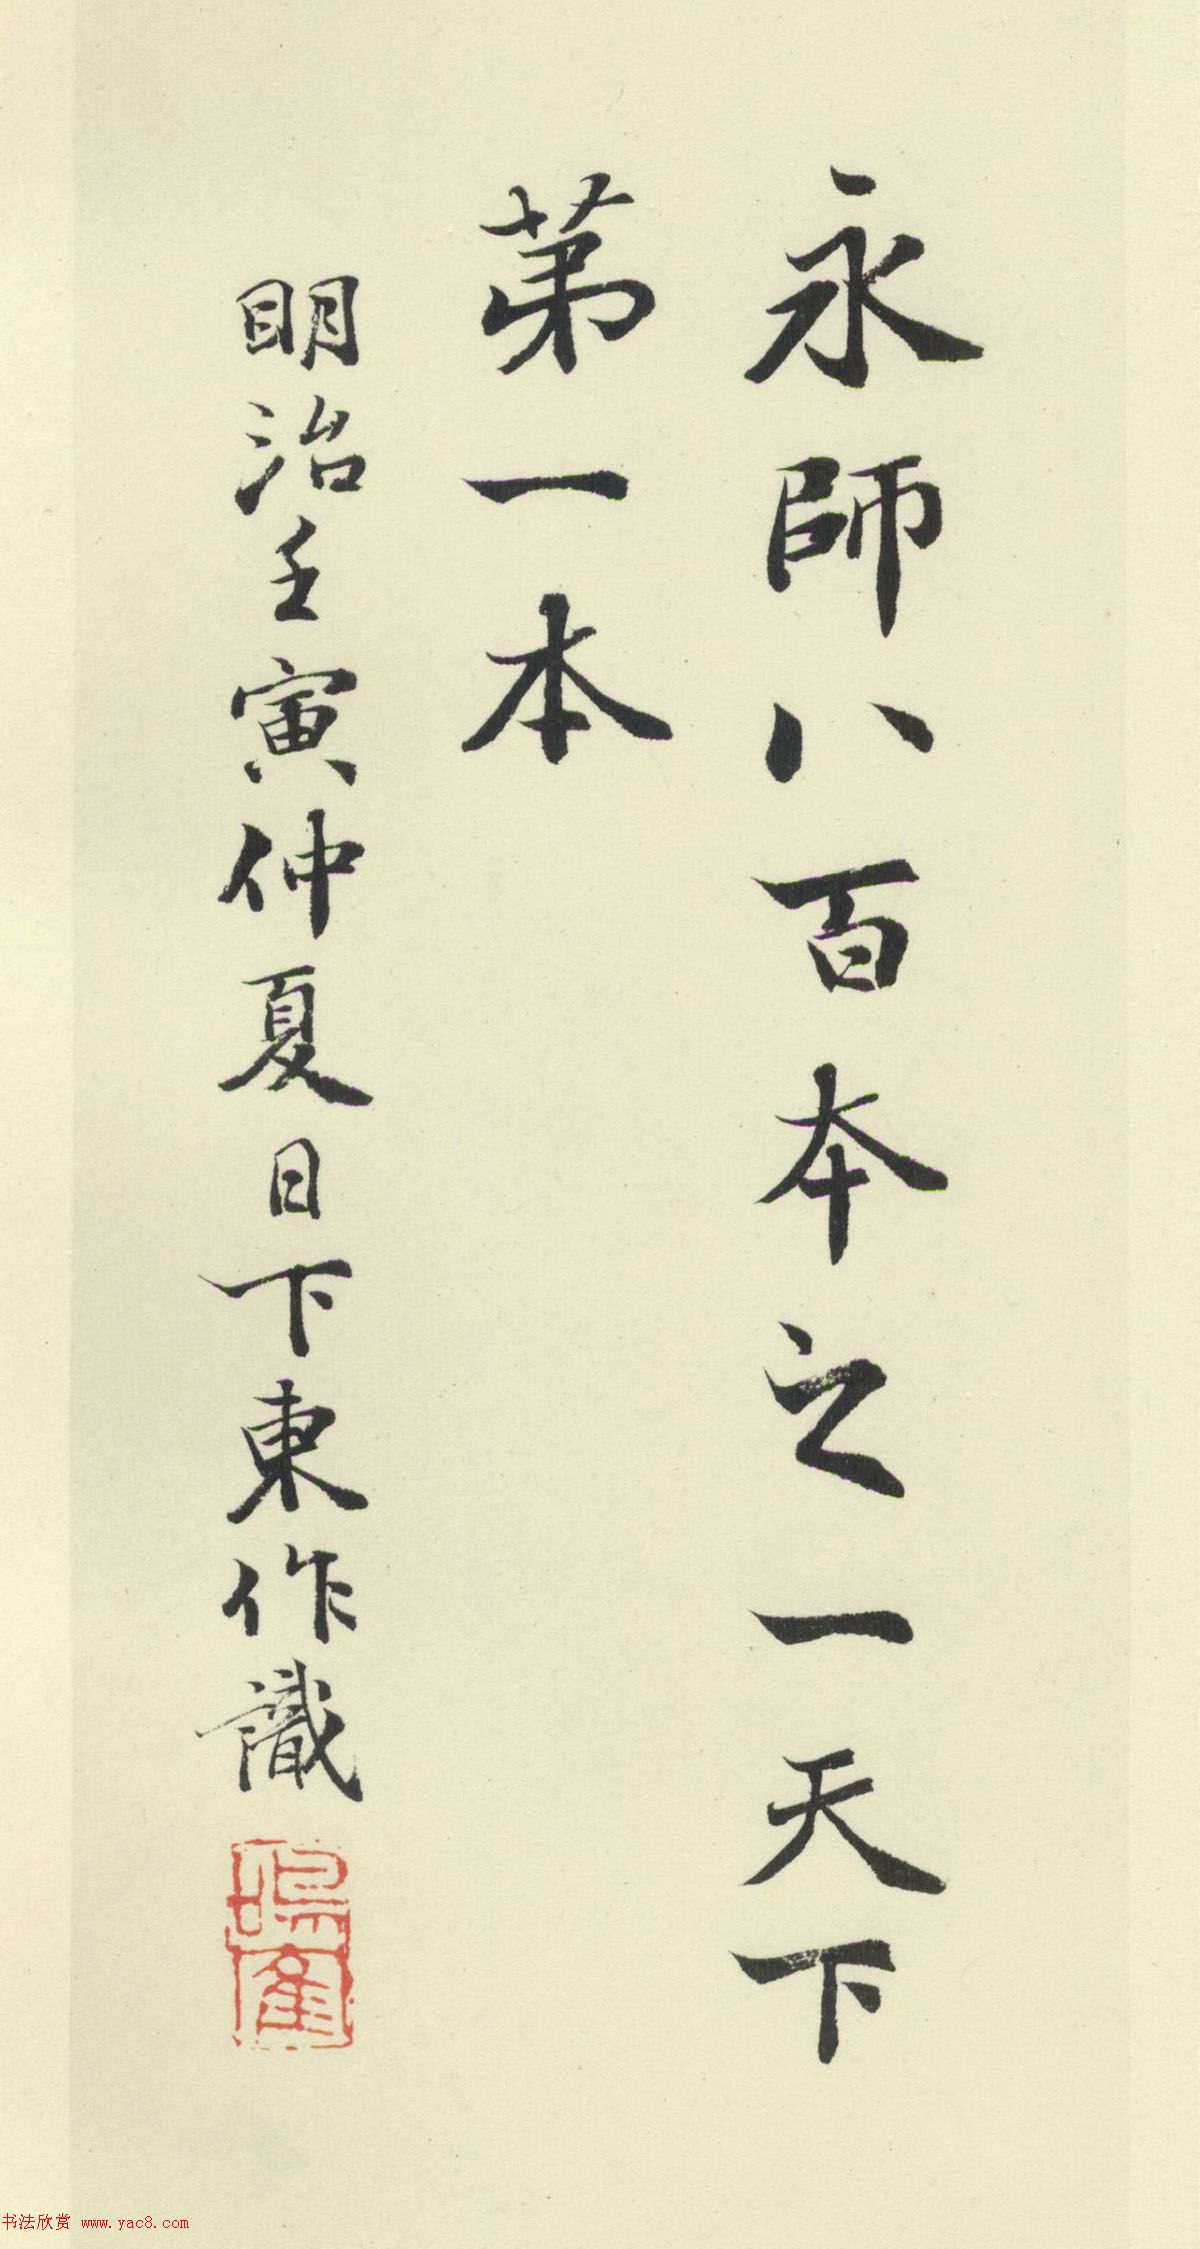 永師八百本之一天下
苐一本
明治壬寅仲夏日下東作識
鳴鶴
书法欣赏 www.yac8.com